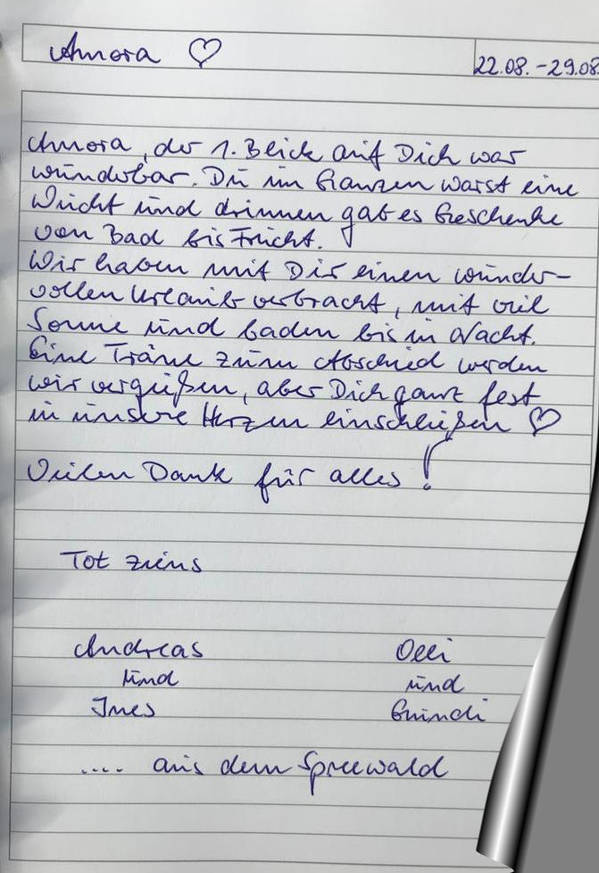 Amora ♡
22.08. - 29.08.
Amora, der 1. Blick auf Dich war
wunderbar. Du im Ganzen warst eine
Wucht und drinnen gab es Geschenke
von Bad bis Frucht.
Wir haben mit Dir einen wunder-
vollen Urlaub verbracht, mit viel
Sonne und baden bis in Nacht.
Eine Träne zum Abschied werden
wir vergießen, aber Dich ganz fest
in unsere Herzen einschließen ♡
Vielen Dank für alles!
Tot ziens
Andreas Olli
und und
Ines Gundi
.... aus dem Spreewald